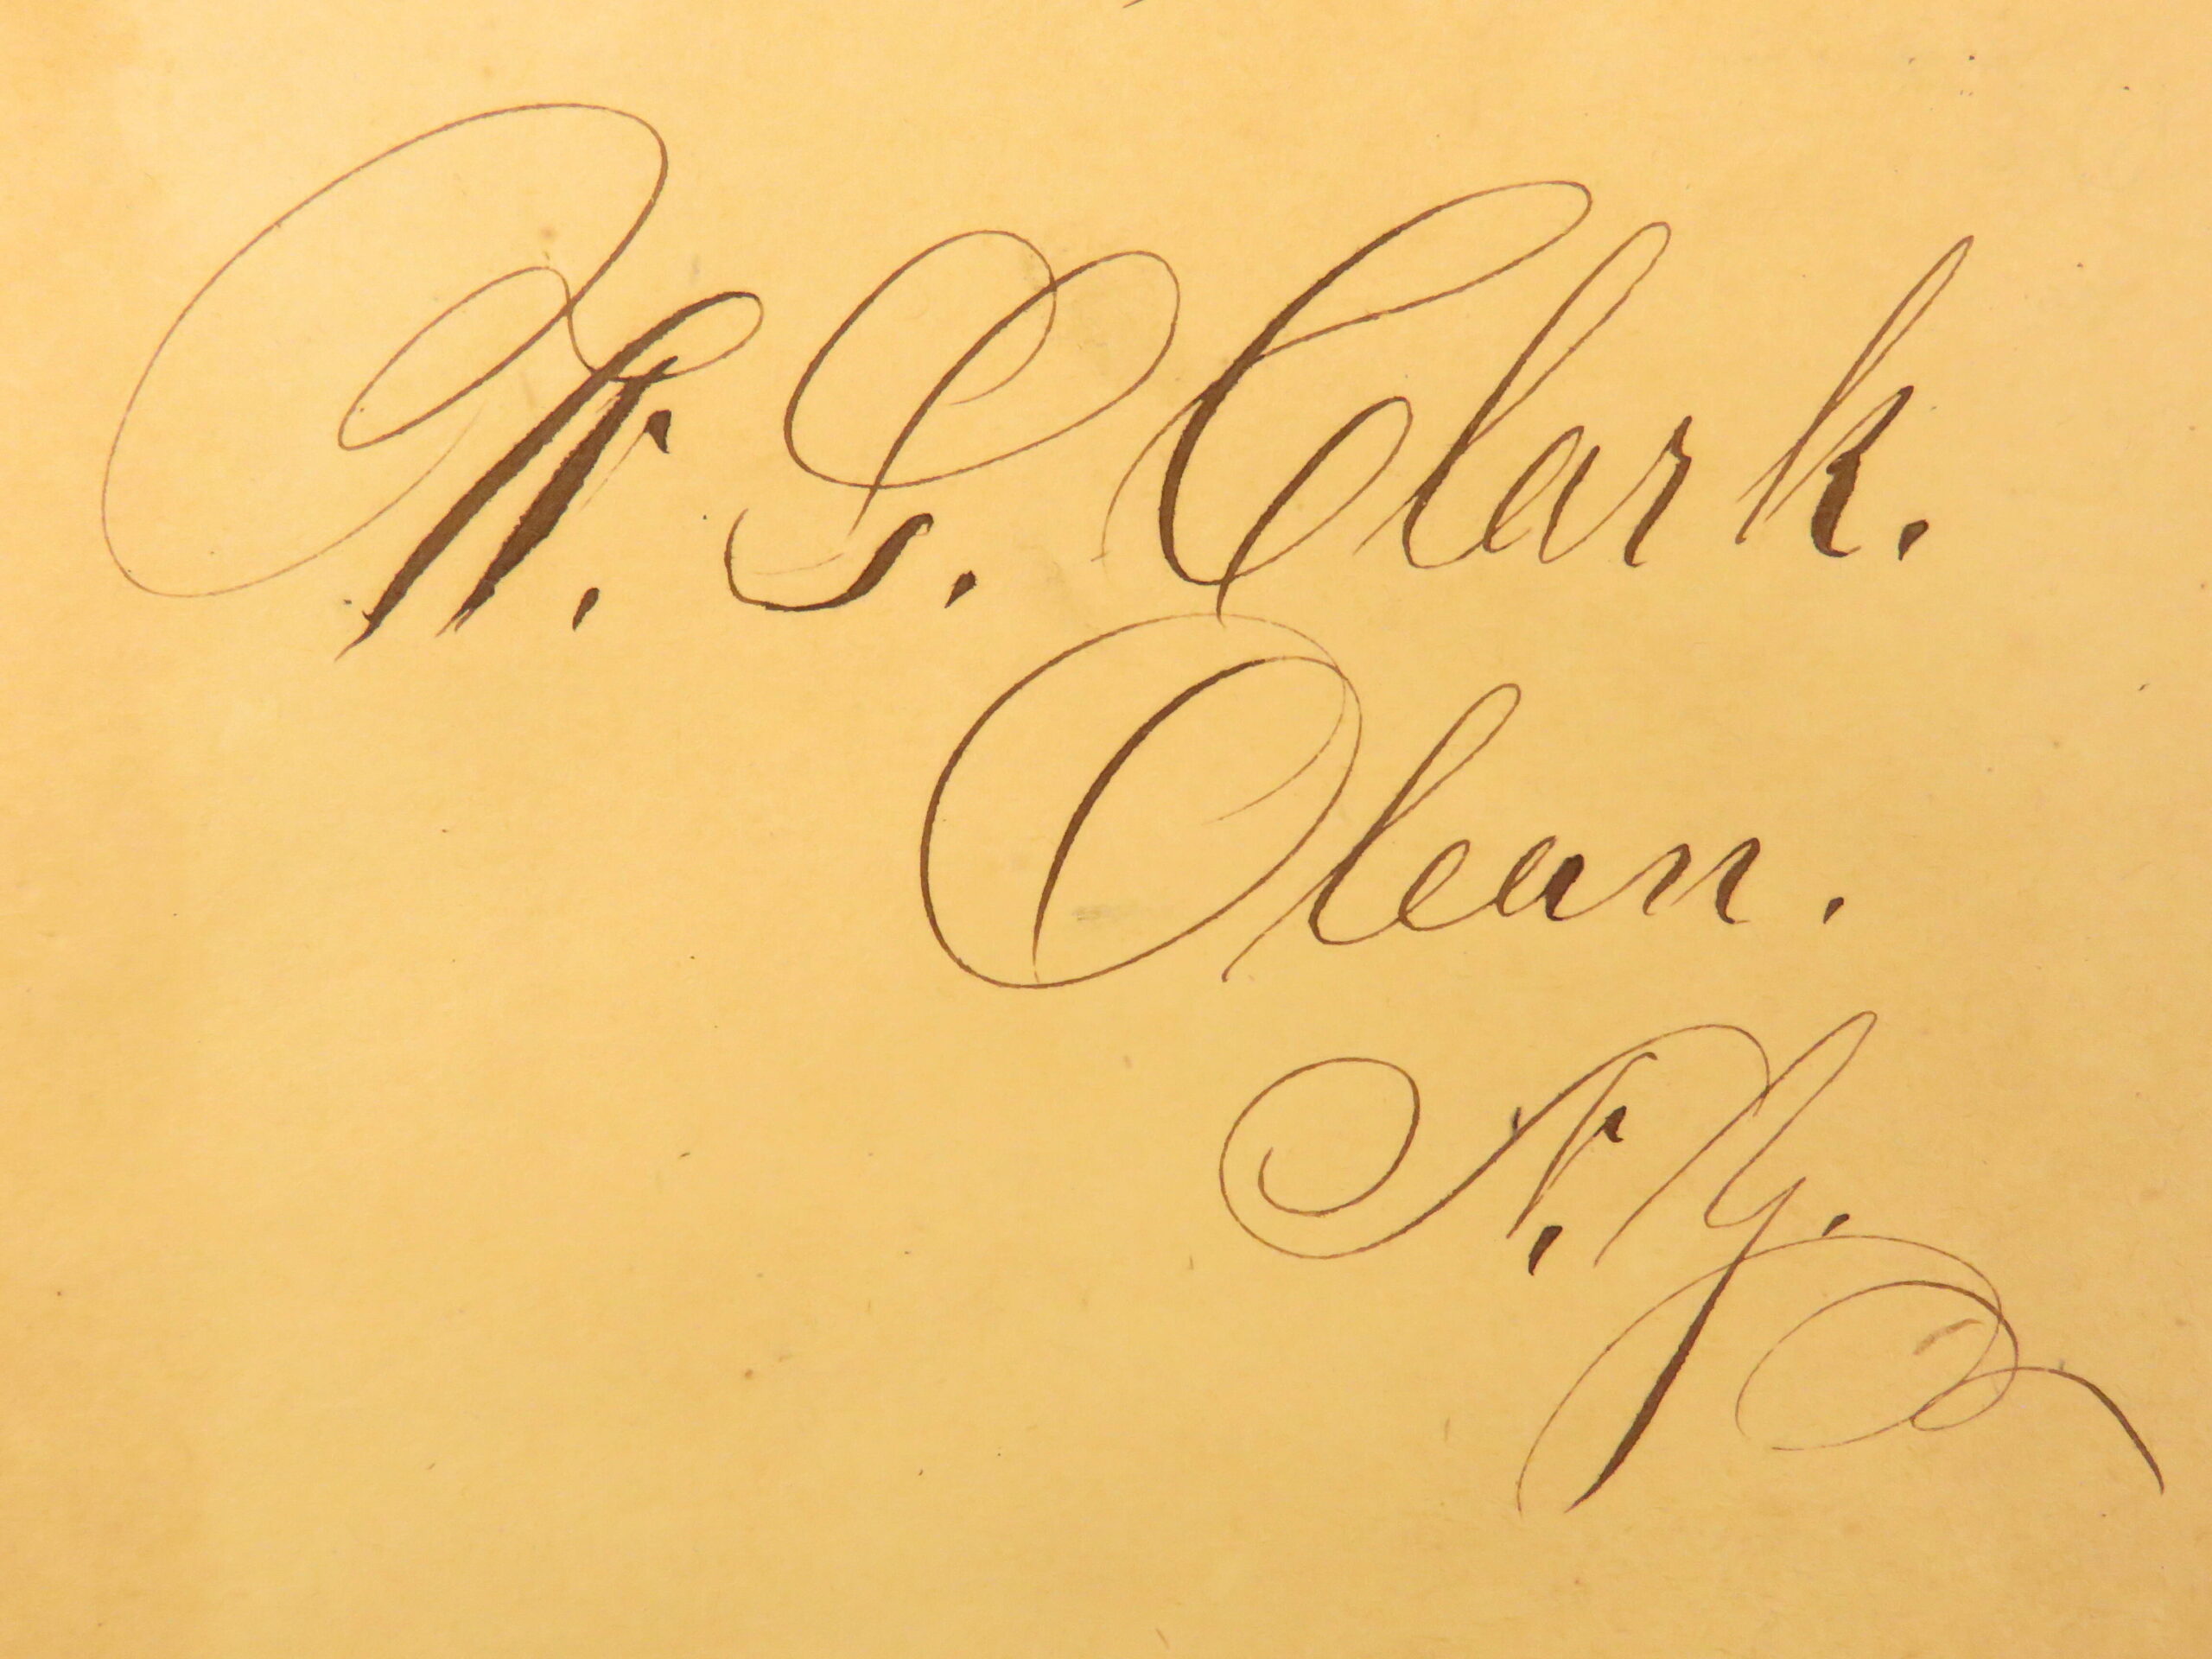 W. G. Clark.
Olean.
N. Y.